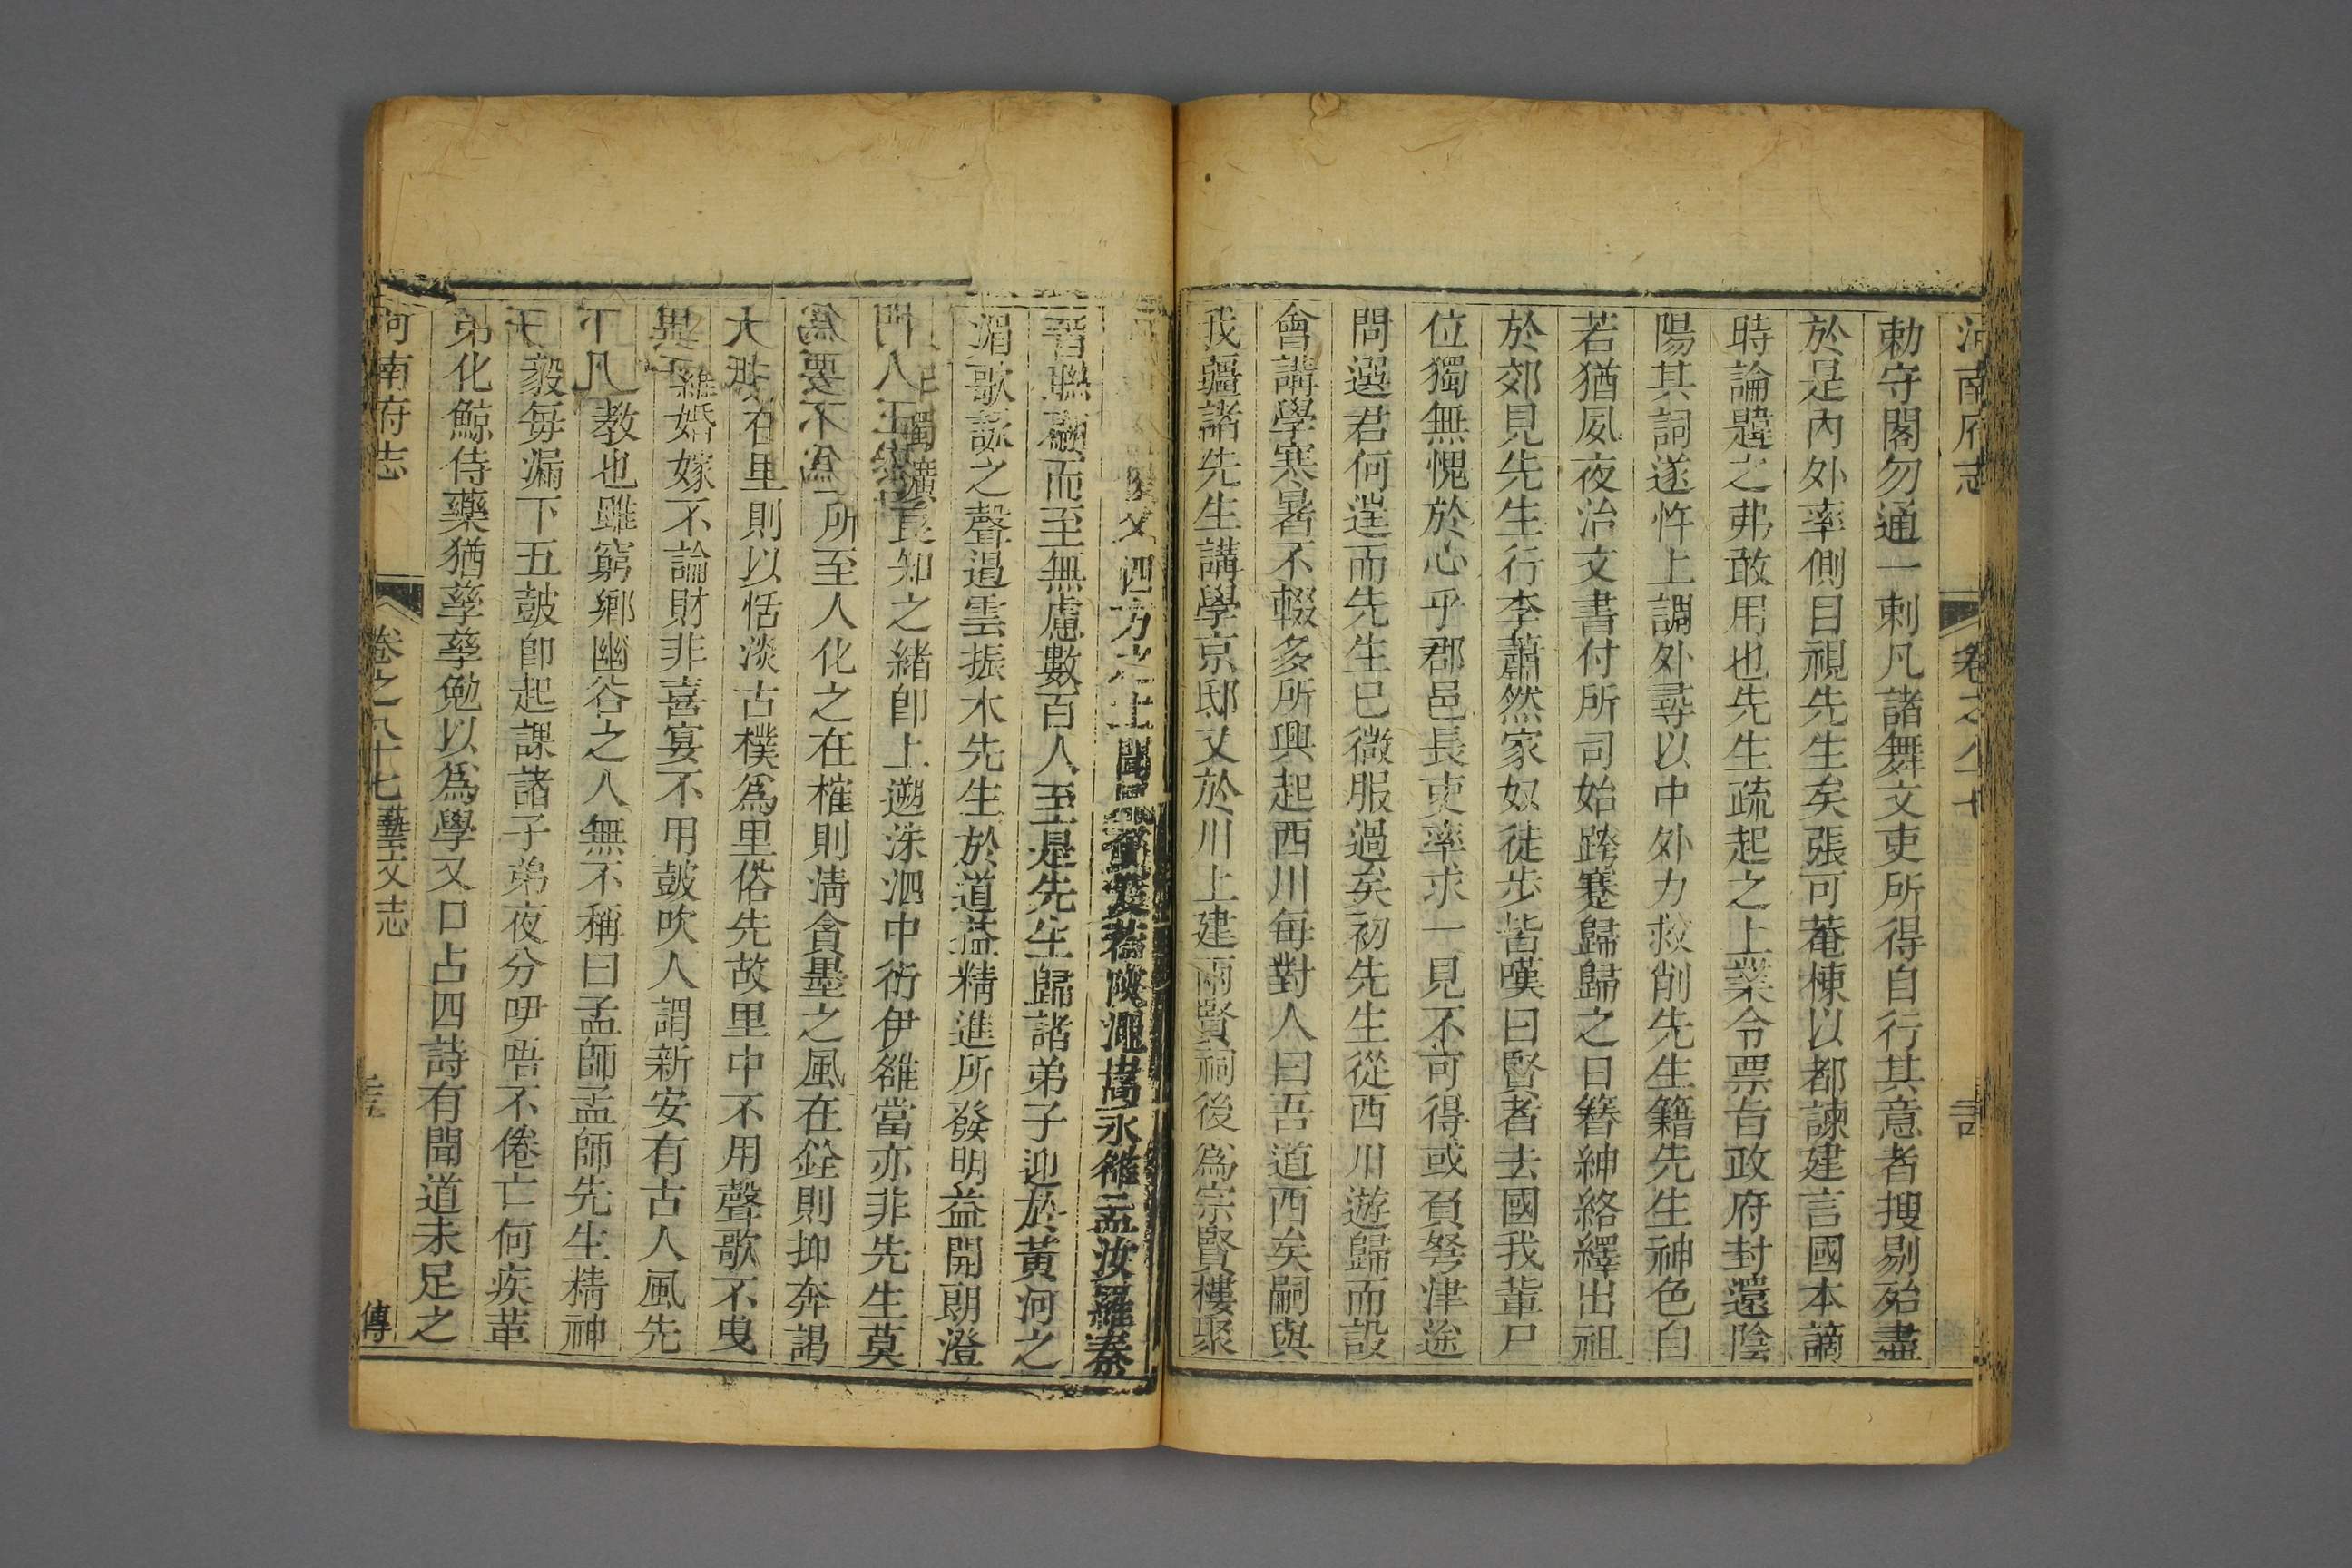 河南府志 卷之八十
勅守閣勿通一刺凡諸舞文吏所得自行其意者搜剔殆盡
於是內外率側目視先生矣張可菴棟以都諫建言國本謫
時論韙之弗敢用也先生疏起之上業令票旨政府封還陰
陽其詞遂忤上調外尋以中外力救削先生籍先生神色自
若猶夙夜治文書付所司始跨蹇歸歸之日簪紳絡繹出祖
於郊見先生行李蕭然家奴徒步皆嘆曰賢者去國我輩尸
位獨無愧於心乎郡邑長吏率求一見不可得或負弩津途
問選君何在而先生已微服過矣初先生從西川遊歸而設
會講學寒暑不輟多所興起西川每對人曰吾道西矣嗣與
我疆諸先生講學京邸又於川上建兩賢祠後為宗賢樓聚
四方之士聞風負笈若陝澠嵩永雒孟汝羅秦
晋聯翩而至無慮數百人至是先生歸諸弟子迎於黃河之
湄歌詠之聲遏雲振木先生於道益精進所發明益開朗澄
良知之緒卽上遡洙泗中衍伊雒當亦非先生莫
所至人化之在榷則淸貪墨之風在銓則抑奔謁
在里則以恬淡古樸為里俗先故里中不用聲歌不曳
婚嫁不論財非喜宴不用鼓吹人謂新安有古人風先
教也雖窮鄉幽谷之人無不稱曰孟師孟師先生精神
毅每漏下五鼓卽起課諸子弟夜分吚唔不倦亡何疾革
弟化鯨侍藥猶孳孳勉以為學又口占四詩有聞道未足之
河南府志 卷之八十七 藝文志 傳